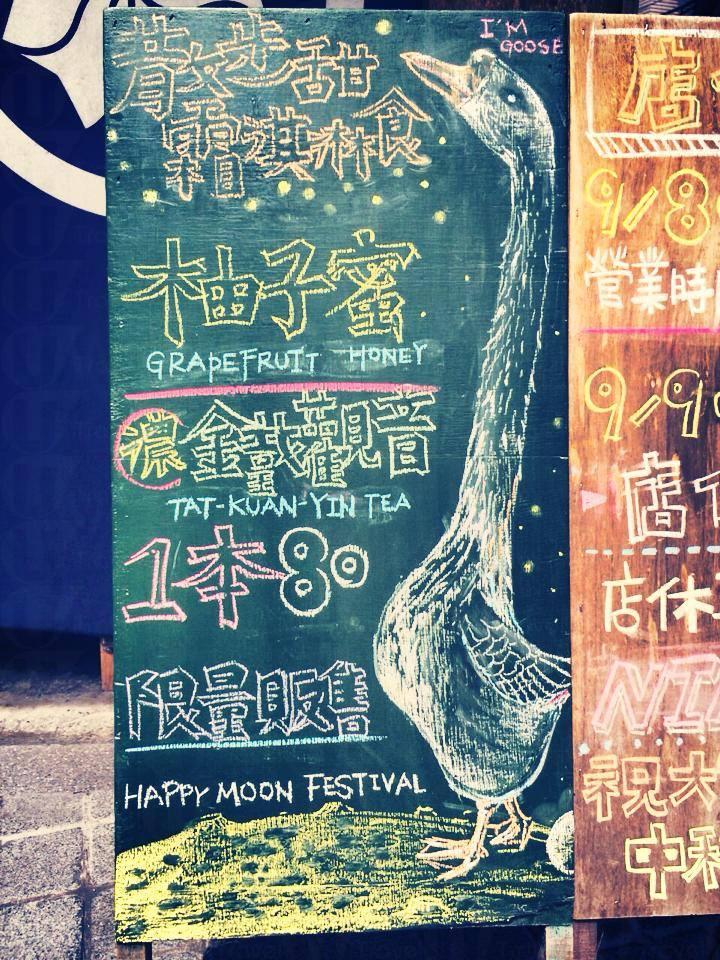 I'M
GOOSE
散步甜
霜淇淋食
柚子蜜
GRAPEFRUIT HONEY
濃 鐵觀音
TAT-KUAN-YIN TEA
1本80
限量販售
HAPPY MOON FESTIVAL
店
9/8
營業時
9/9
店
店休
NI
祝大
中秋